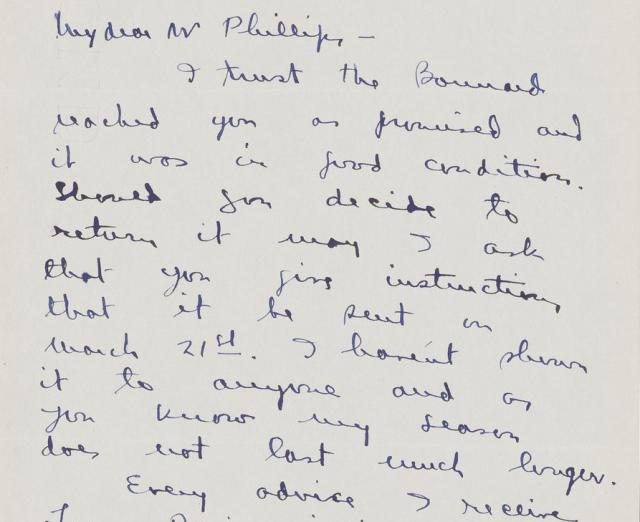 My dear Mr Phillips, —
I trust the Bonnard
reached you as promised and
it was in good condition.
Should you decide to
return it may I ask
that you give instructions
that it be sent on
March 21st. I haven't shown
it to anyone and as
you know my season
does not last much longer.
Every advice I receive